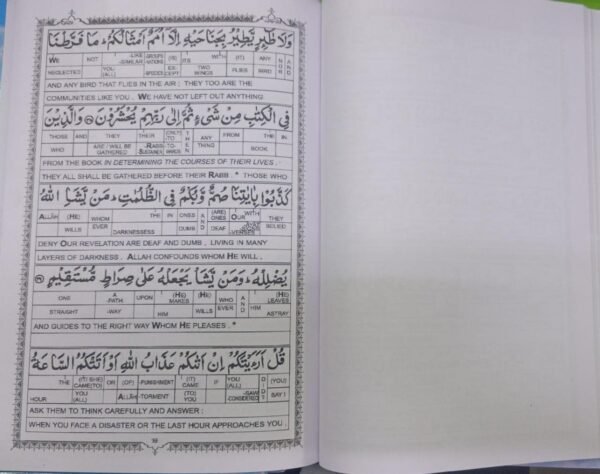 وَلَا طٰٓئِرٍ يَّطِيْرُ بِجَنَاحَيْهِ اِلَّآ اُمَمٌ اَمْثَالُكُمْ ؕ مَا فَرَّطْنَا
WE NOT -LIKE -SIMILAR GROUPS -NATIONS (IS) ITS WITH (IT) ANY AND NOR
NEGLECTED YOU (ALL) -SPECIES EX- CEPT TWO WINGS FLIES BIRD
AND ANY BIRD THAT FLIES IN THE AIR ; THEY TOO ARE THE
COMMUNITIES LIKE YOU . WE HAVE NOT LEFT OUT ANYTHING
فِى الْكِتٰبِ مِنْ شَىْءٍ ثُمَّ اِلٰى رَبِّهِمْ يُحْشَرُوْنَ وَالَّذِيْنَ
THOSE AND THEY THEIR (ONLY) -TO THEN ANY FROM THE IN
WHO ARE / WILL BE GATHERED -RABB -SUSTAINER -TO- THING BOOK
FROM THE BOOK IN DETERMINING THE COURSES OF THEIR LIVES .
THEY ALL SHALL BE GATHERED BEFORE THEIR RABB . * THOSE WHO
كَذَّبُوْا بِاٰيٰتِنَا صُمٌّ وَّبُكْمٌ فِى الظُّلُمٰتِ ؕ مَنْ يَّشَاِ اللّٰهُ
ALLAH (HE) WHOM THE IN ONES AND (ARE) ONES WITH OUR THEY
WILLS EVER DARKNESSESS DUMB DEAF -VERSES BELIED
DENY OUR REVELATION ARE DEAF AND DUMB , LIVING IN MANY
LAYERS OF DARKNESS . ALLAH CONFOUNDS WHOM HE WILL ,
يُضْلِلْهُ ؕ وَمَنْ يَّشَاْ يَجْعَلْهُ عَلٰى صِرَاطٍ مُّسْتَقِيْمٍ
ONE A -PATH UPON (HE) MAKES (HE) WHO AND (HE) LEAVES
STRAIGHT -WAY HIM WILLS EVER HIM ASTRAY
AND GUIDES TO THE RIGHT WAY WHOM HE PLEASES . *
قُلْ اَرَءَيْتَكُمْ اِنْ اَتٰىكُمْ عَذَابُ اللّٰهِ اَوْ اَتَتْكُمُ السَّاعَةُ
THE (IT/ SHE) CAME(TO) OR (OF) -PUNISHMENT (IT) CAME IF YOU (ALL) (YOU)
HOUR YOU (ALL) ALLAH -TORMENT (TO) YOU -SAW -CONSIDERED SAY !
ASK THEM TO THINK CAREFULLY AND ANSWER :
WHEN YOU FACE A DISASTER OR THE LAST HOUR APPROACHES YOU ,